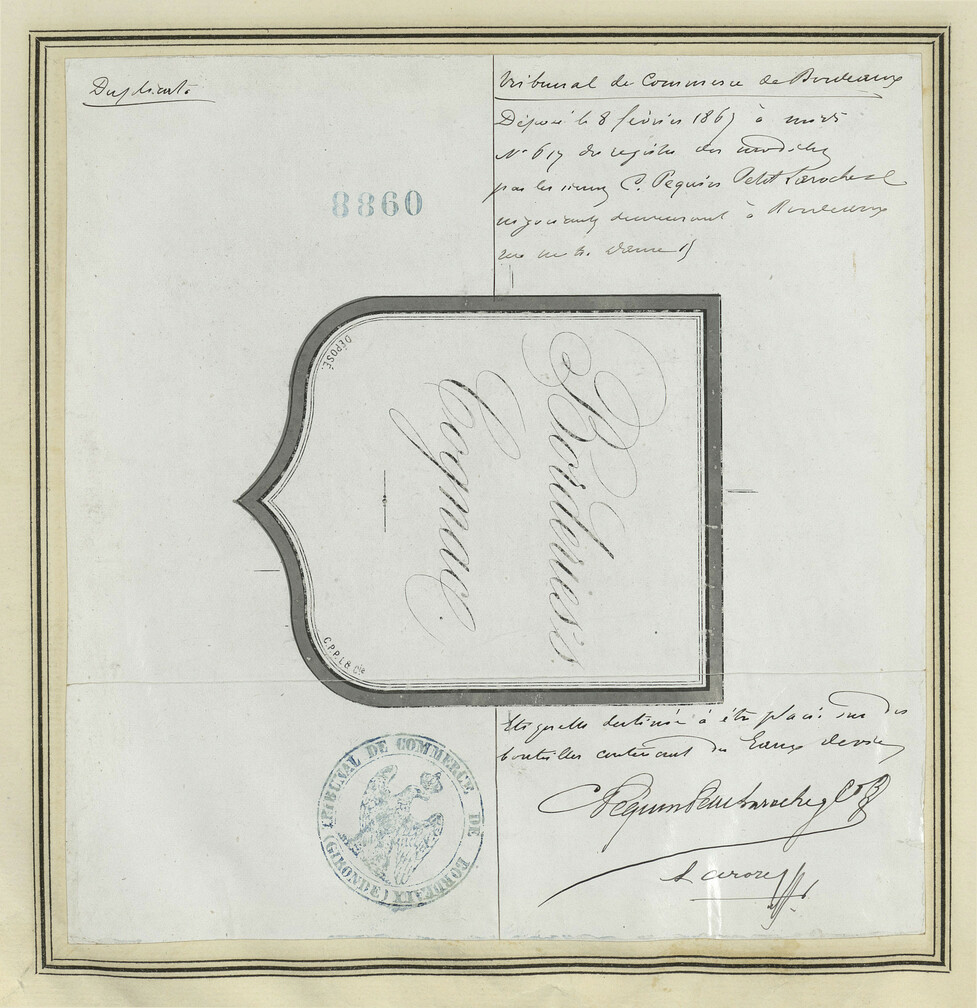 Duplicata
Tribunal de Commerce de Bordeaux
Déposé le 8 février 1867 à midi
Nº 617 du registre des modèles
par les sieurs C. Pequin Petit Laroche
négociants demeurant à Bordeaux
rue
8860
DÉPOSÉ.
Borderies
Cognac.
C.P.P.L & Cie
Etiquette destinée à être placée sur des
bouteilles contenant des
C Pequin Petit Laroche & Co
TRIBUNAL DE COMMERCE DE BORDEAUX
(GIRONDE)